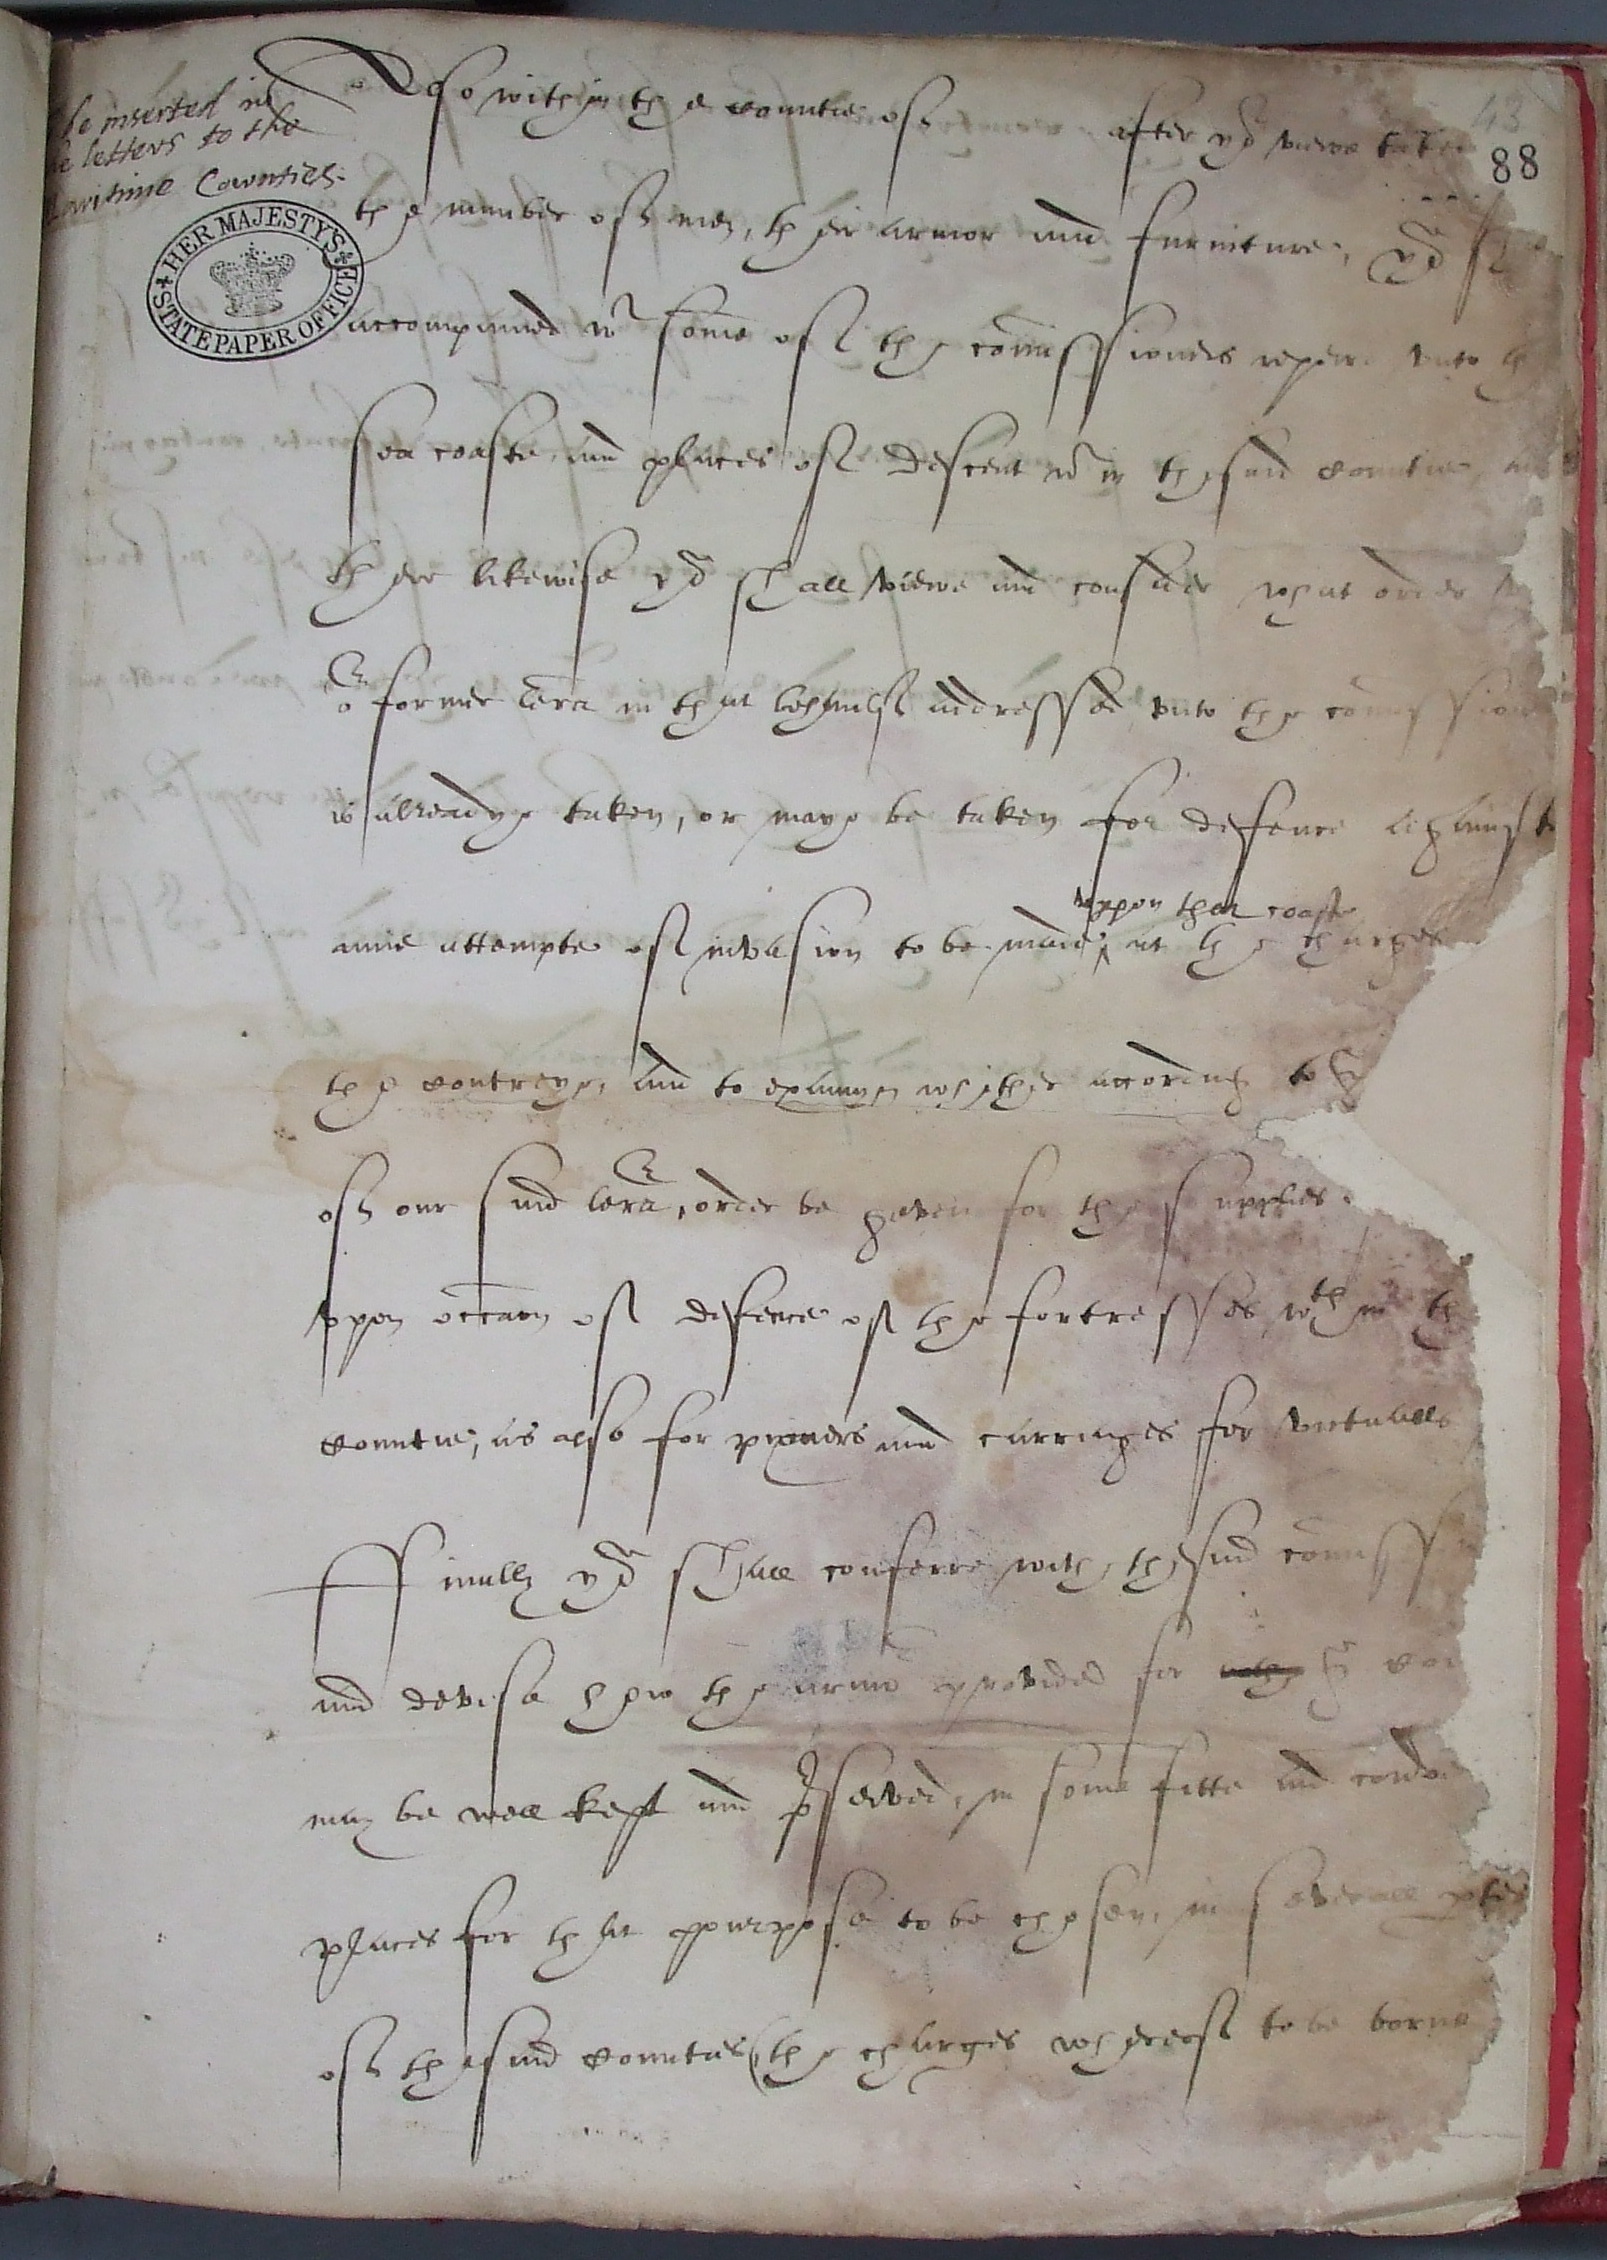 be inserted in
letters to the
Maritime Counties.
HER MAJESTY'S
STATE PAPER OFFICE
43
88
Also within the countie of after yor viewe taken
the number of men, their armor and furniture, yow
accompanied wt some of the comissioners repere vnto
sea coaste and places of descent wt in the said countie, and
there likewise yow shall viewe and consider what order
or former lres in that behalf addressed vnto the comission
is alreadye taken, or maye be taken for defence against
anie attempte of invasion to be made, at the charges
vppon that coaste
the contreye, and to examyn whether according to
of our said lres, order be geven for the supplies
vppon occaon of defence of the fortresses wth in the
countie, as also for pyoners and carriages for victualls
Ffinally yow shall conferre with the said comiss
and devise how the armor provided for
may be well kept and preserved, in some fitte and conve
places for that pourpose to be chosen, in severall ptes
of the said counties (the charges whereof to be borne